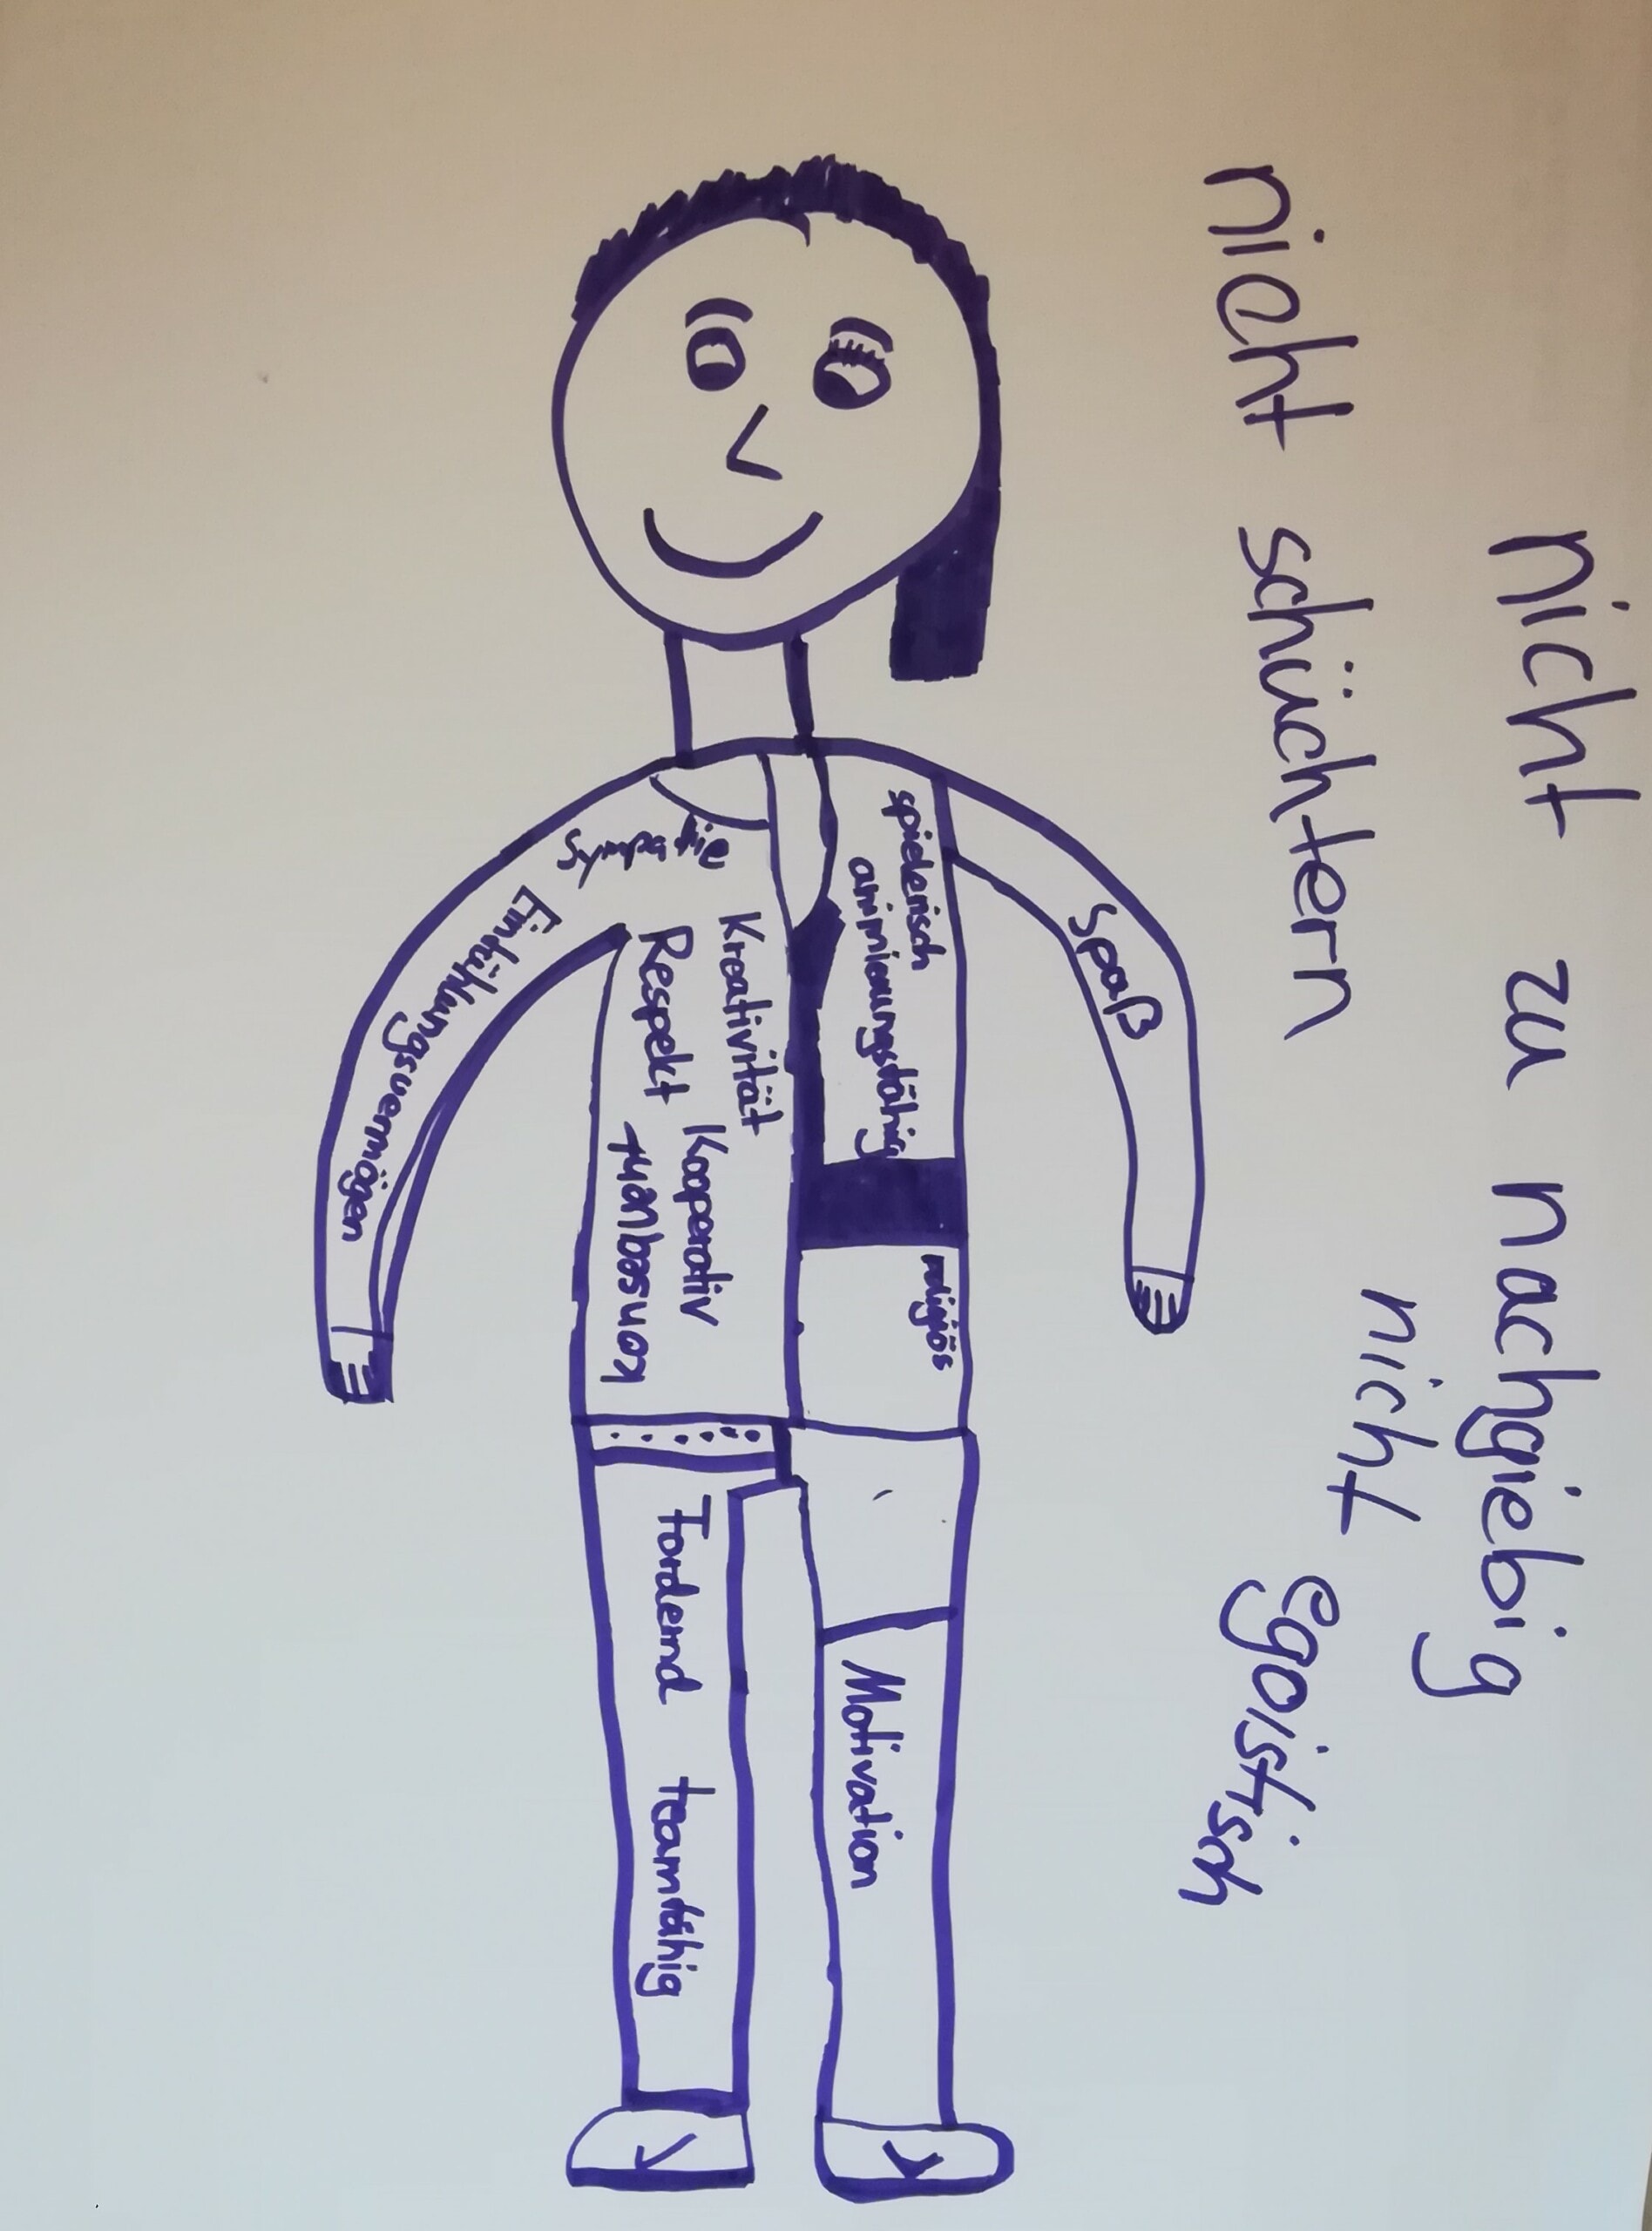 nicht zu nachgiebig
nicht schüchtern
nicht egoistisch
Spaß
spielerisch
religiös
Motivation
Kreativität
Kooperativ
Respekt
konsequent
Einfühlungsvermögen
Fordernd teamfähig